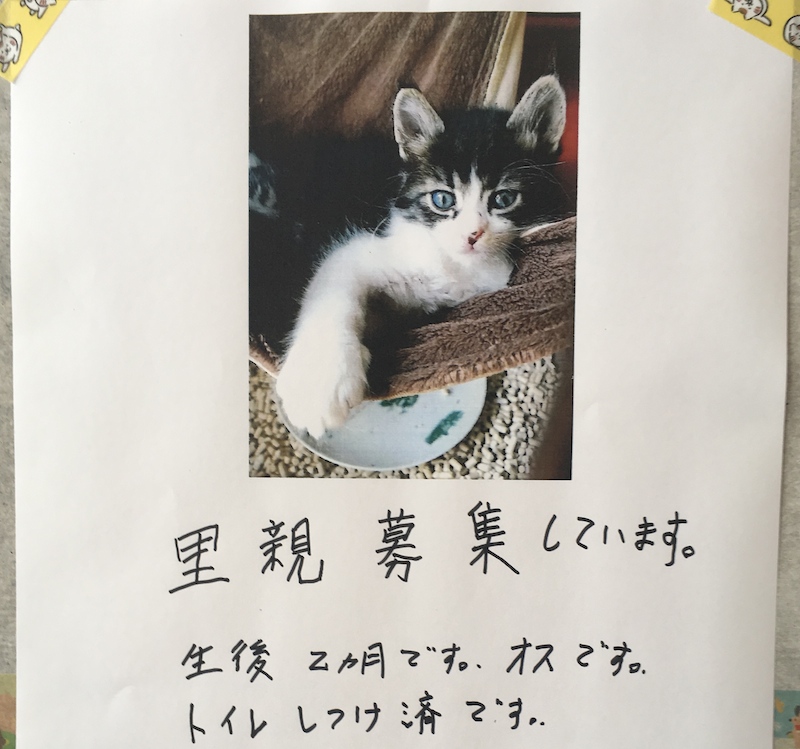 里親募集しています。
生後 2ヵ月です。オスです。
トイレしつけ済です。